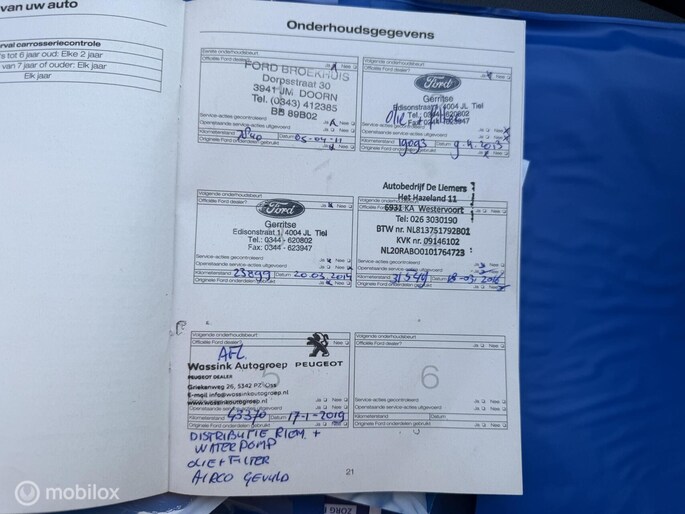 van uw auto
rval carrosseriecontrole
s tot 6 jaar oud: Elke 2 jaar
van 7 jaar of ouder: Elk jaar
Elk jaar
Onderhoudsgegevens
Eerste onderhoudsbeurt
Officiële Ford dealer? Ja Nee
FORD BROEKHUIS
Dorpsstraat 30
3941 JM DOORN
Tel. (0343) 412385
BB 89B02
Service-acties gecontroleerd Ja Nee
Openstaande service-acties uitgevoerd Ja Nee
Kilometerstand 7840 Datum 05-04-11
Originele Ford onderdelen gebruikt Ja Nee
Volgende onderhoudsbeurt
Officiële Ford dealer? Ja Nee
Ford
Gerritse
Edisonstraat 1, 4004 JL Tiel
Tel.: 0344 - 620802
Fax: 0344 - 623947
Service-acties gecontroleerd Ja Nee
Openstaande service-acties uitgevoerd Ja Nee
Kilometerstand 19093 Datum
Originele Ford onderdelen gebruikt Ja Nee
Volgende onderhoudsbeurt
Officiële Ford dealer? Ja Nee
Ford
Gerritse
Edisonstraat 1, 4004 JL Tiel
Tel.: 0344 - 620802
Fax: 0344 - 623947
Service-acties gecontroleerd Ja Nee
Openstaande service-acties uitgevoerd Ja Nee
Kilometerstand 23899 Datum 20.03.2014
Originele Ford onderdelen gebruikt Ja Nee
Autobedrijf De Liemers
Het Hazeland 11
6931 KA Westervoort
Tel: 026 3030190
BTW nr. NL813751792B01
KVK nr. 09146102
NL20RABO0101764723
Service-acties gecontroleerd Ja Nee
Openstaande service-acties uitgevoerd Ja Nee
Kilometerstand 31549 Datum
Originele Ford onderdelen gebruikt Ja Nee
Volgende onderhoudsbeurt
Officiële Ford dealer? Ja Nee
AFL
Wassink Autogroep PEUGEOT
PEUGEOT DEALER
Griekenweg 26, 5342 PZ Oss
E-mail info@wassinkautogroep.nl
www.wassinkautogroep.nl
5
Openstaande service-acties uitgevoerd Ja Nee
Kilometerstand 45370 Datum 17-1-2019
Originele Ford onderdelen gebruikt Ja Nee
DISTRIBUTIE RIEM +
WATERPOMP
OLIE + FILTER
AIRCO GEVULD
Volgende onderhoudsbeurt
Officiële Ford dealer? Ja Nee
6
Service-acties gecontroleerd Ja Nee
Openstaande service-acties uitgevoerd Ja Nee
Kilometerstand Datum
Originele Ford onderdelen gebruikt Ja Nee
21
mobilox